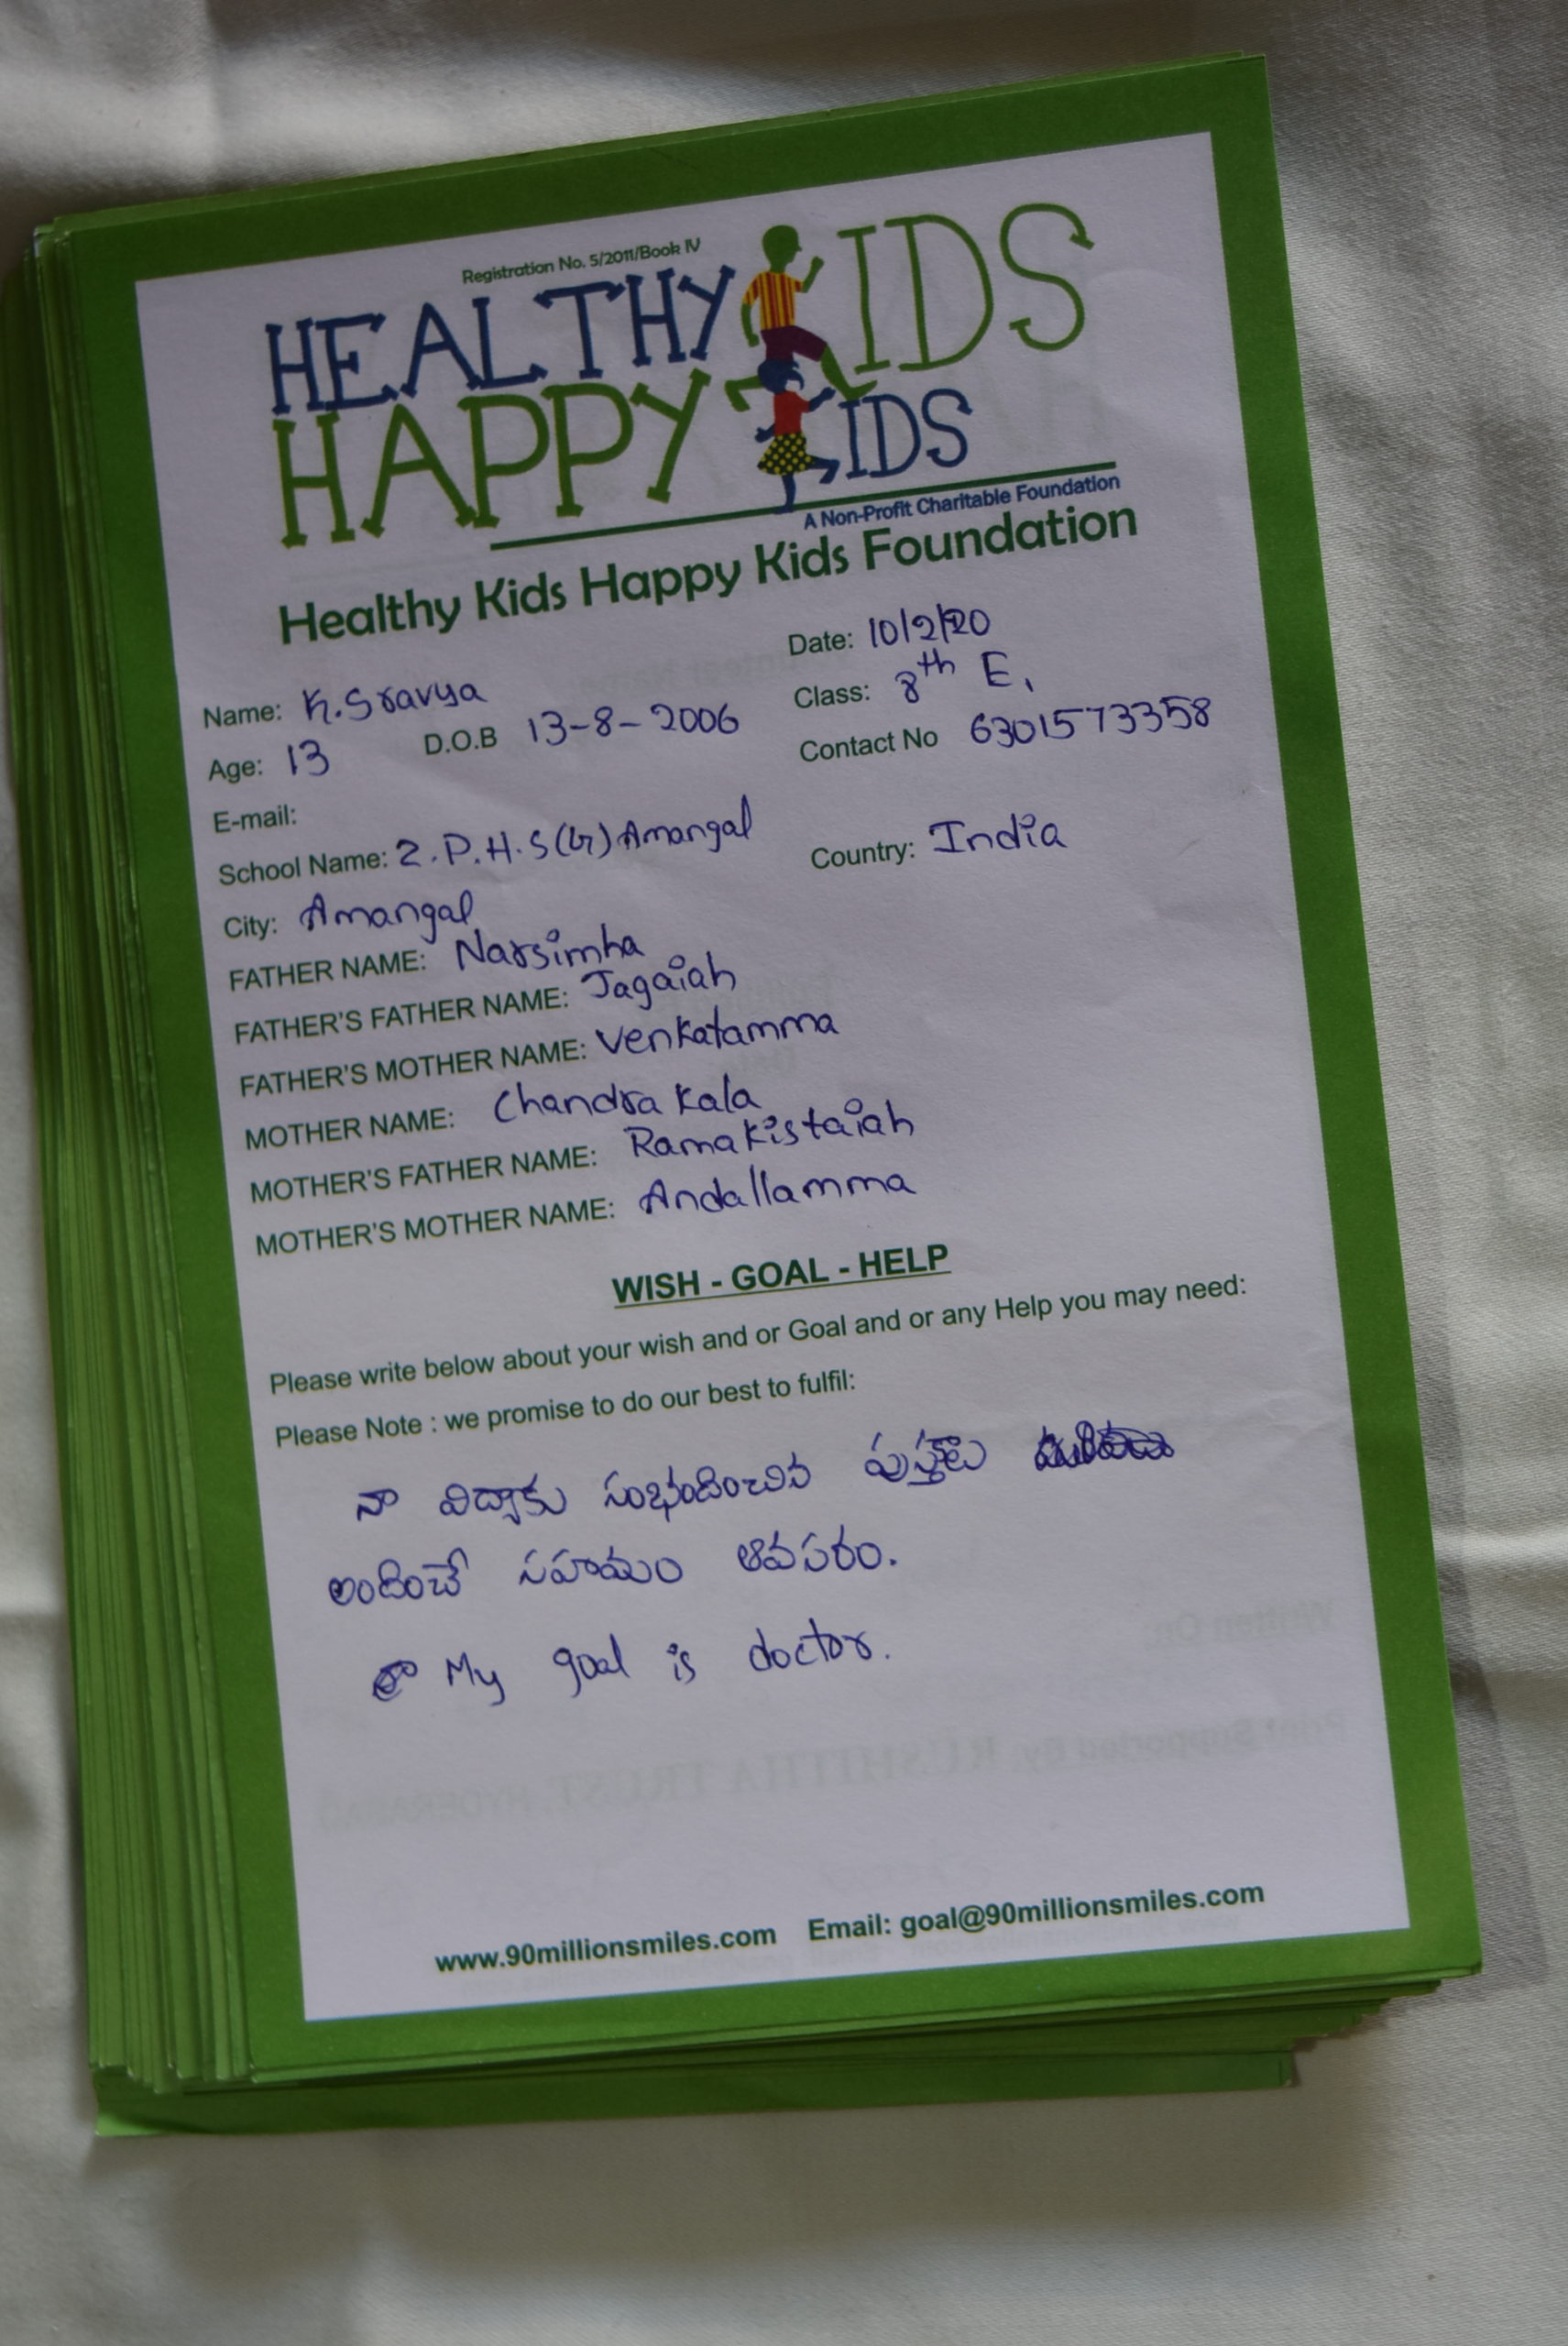 Registration No. 5/2011/Book IV
HEALTHY KIDS
HAPPY KIDS
A Non-Profit Charitable Foundation
Healthy Kids Happy Kids Foundation
Date: 10/2/20
Name: K. Sravya
Class: 8th E,
Age: 13 D.O.B 13-8-2006
Contact No 6301573358
E-mail:
School Name: Z.P.H.S(G) Amangal
Country: India
City: Amangal
FATHER NAME: Narsimha
FATHER'S FATHER NAME: Jagaiah
FATHER'S MOTHER NAME: Venkatamma
MOTHER NAME: Chandra Kala
MOTHER'S FATHER NAME: Ramakistaiah
MOTHER'S MOTHER NAME: Andallamma
WISH - GOAL - HELP
Please write below about your wish and or Goal and or any Help you may need:
Please Note : we promise to do our best to fulfil:
నా విద్యాకు సంభందించిన పుస్తకాలు
అందించే సహాయం అవసరం.
My goal is doctor.
www.90millionsmiles.com Email: goal@90millionsmiles.com